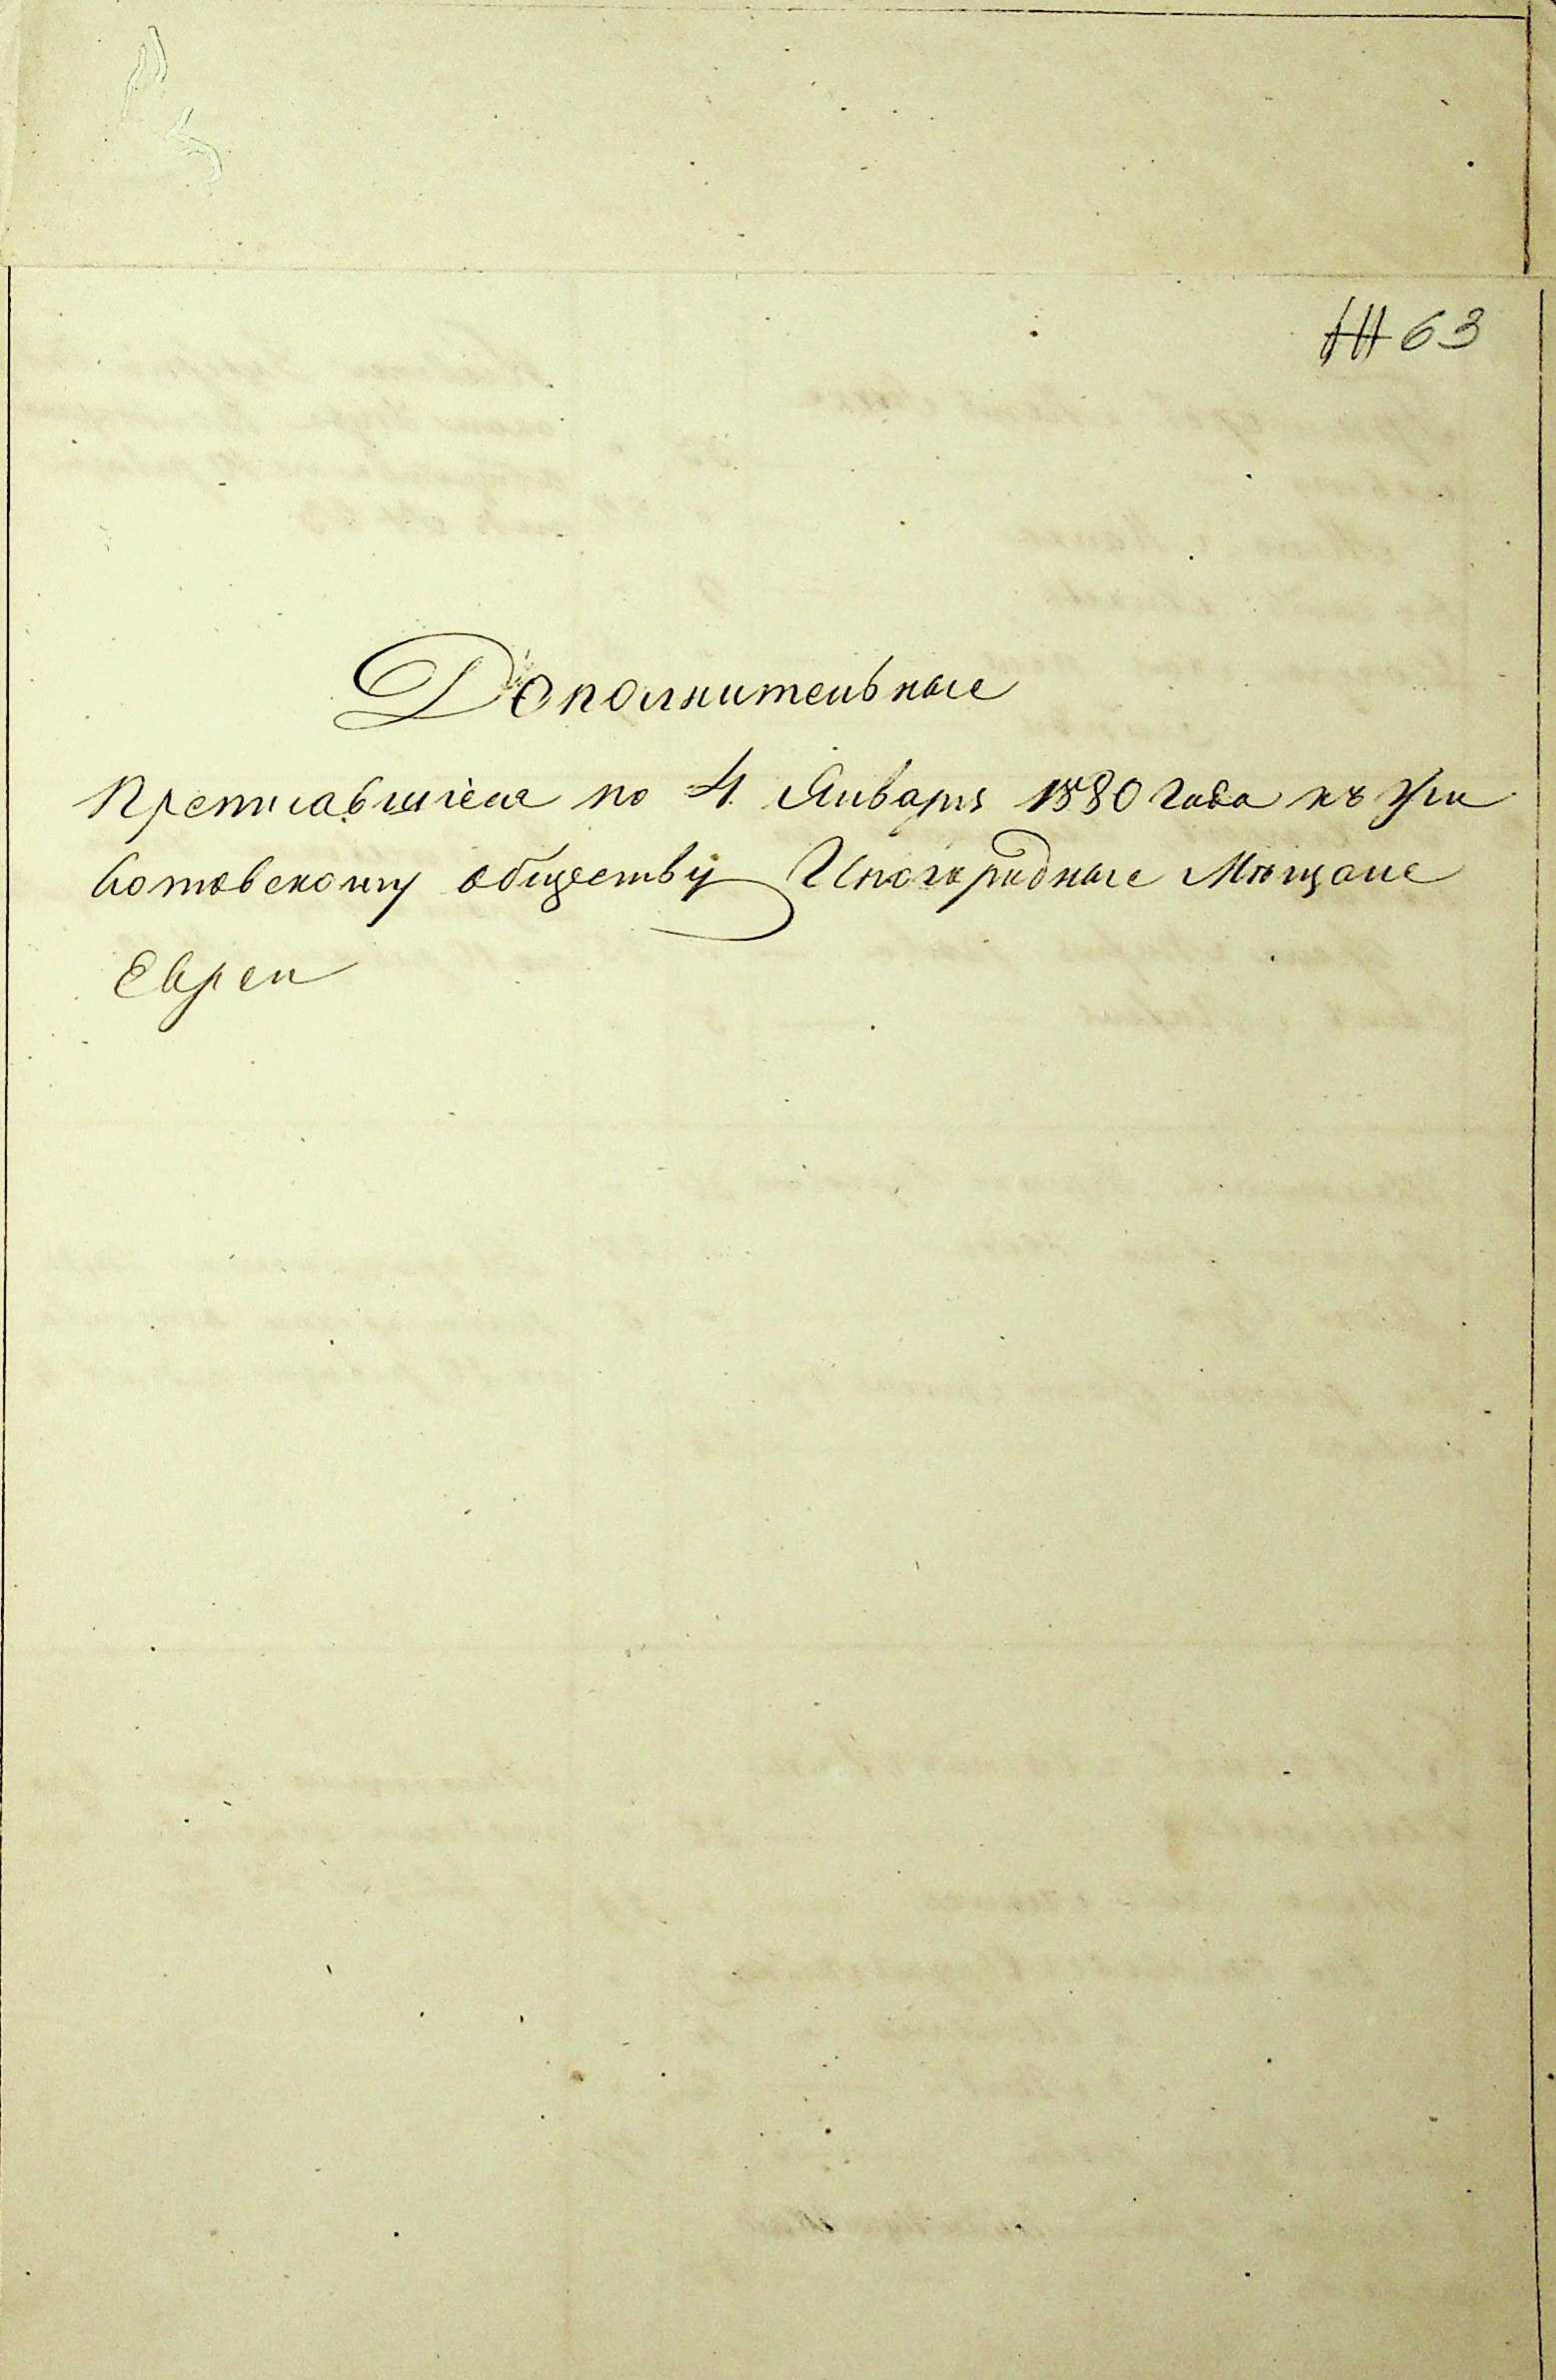 63
Дополнительные
Преписавшіеся по 4 Января 1880 года къ Жи
вотовскому обществу Иногородные Мѣщане
Евреи